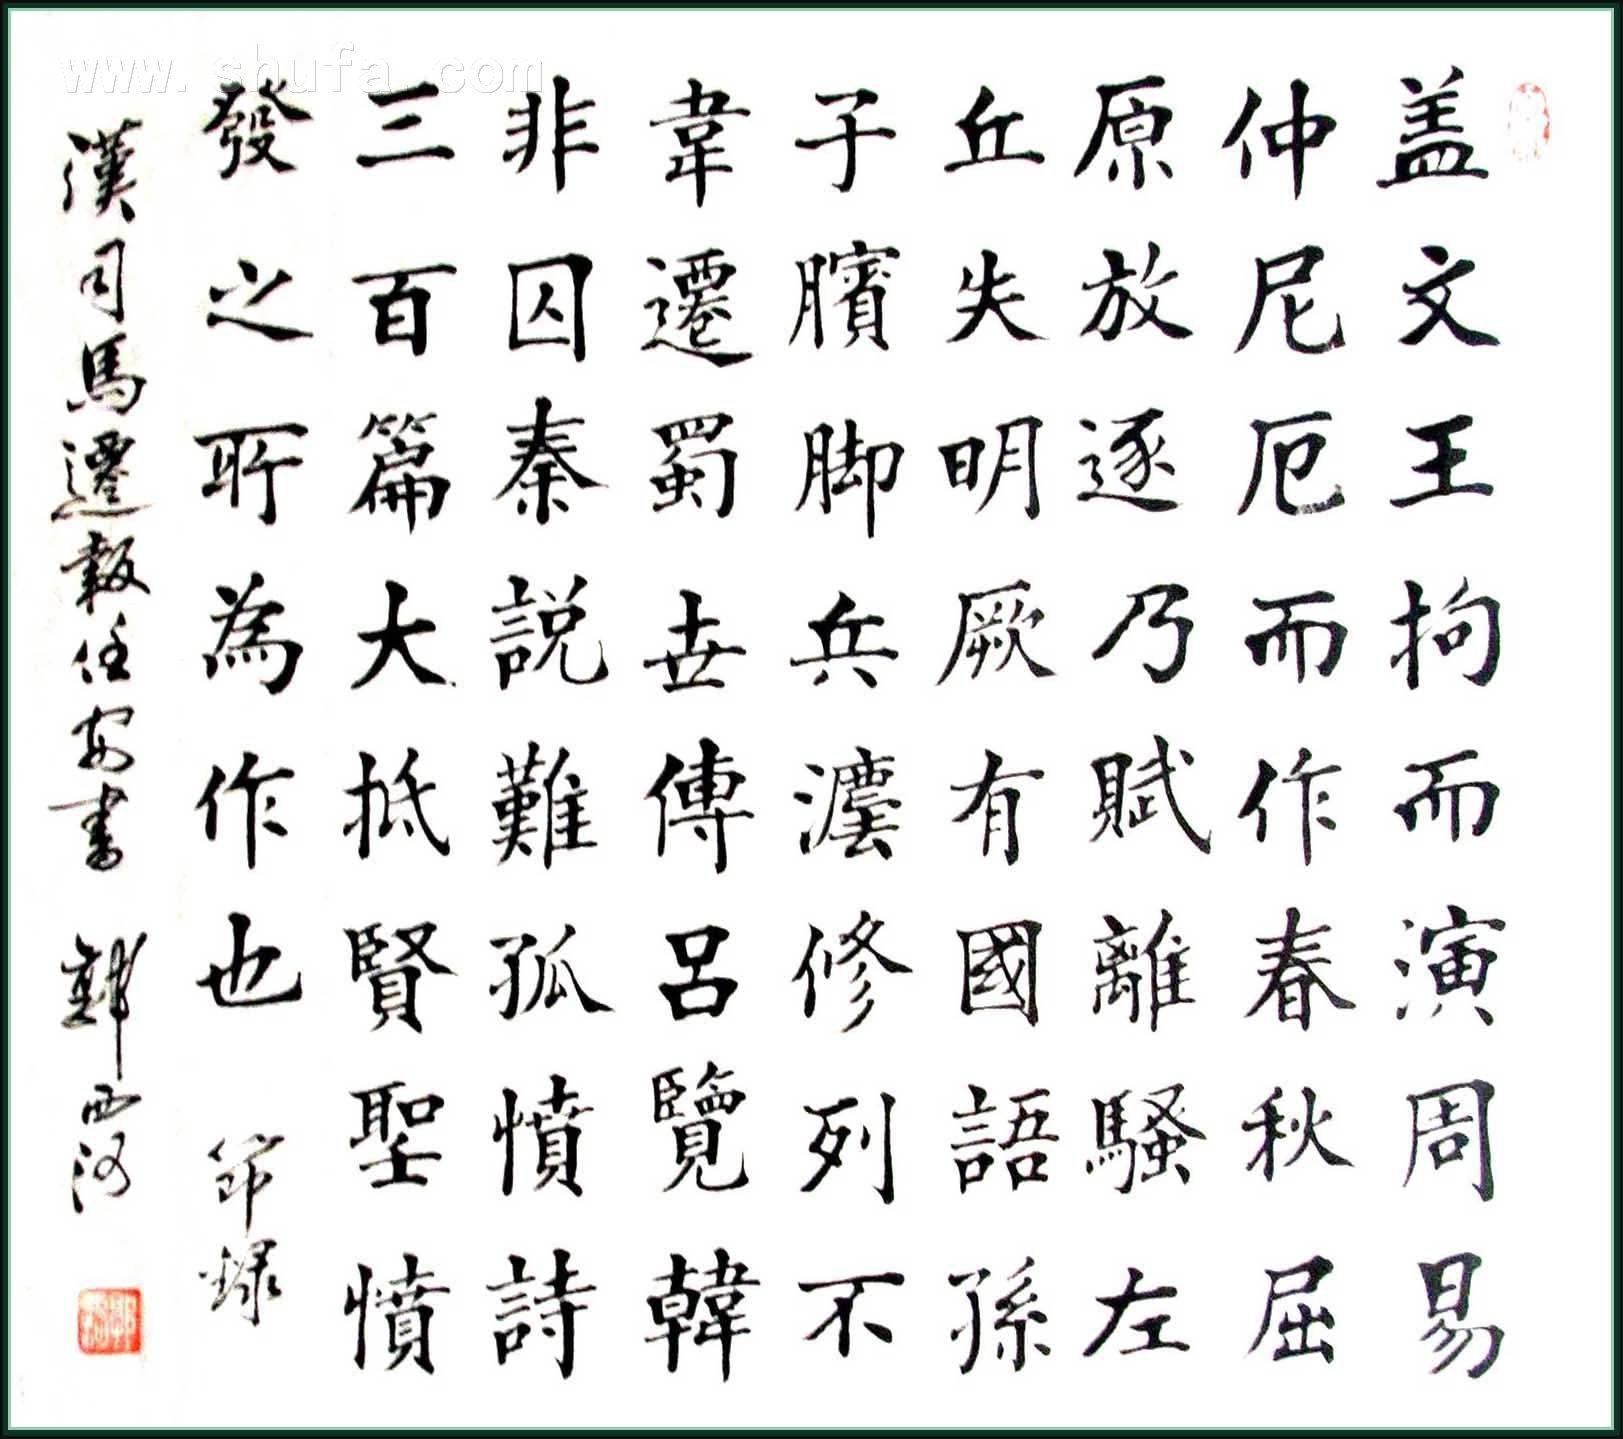 盖文王拘而演周易
仲尼厄而作春秋屈
原放逐乃賦離騷左
丘失明厥有國語孫
子臏脚兵灋修列不
韋遷蜀世傳呂覽韓
非囚秦説難孤憤詩
三百篇大抵賢聖憤
發之所為作也 節録
漢司馬遷報任安書 西河
www.shufa.com